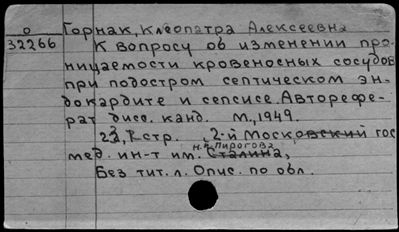 О Горнак, Клеопатра Алексеевна
32266 К вопросу об изменении про-
ницаемости кровеносных сосудов
при подостром септическом эн-
докардите и сепсисе. Авторефе-
рат дисс. канд. М., 1949.
стр. 2-й Московский гос
н.и. Пирогова
мед. ин-т им. Сталина,
Без тит. л. Опис. по обл.